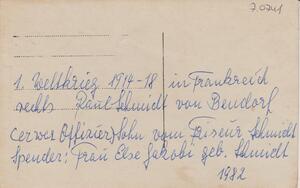 7.0741
1. Weltkrieg 1914-18 in Frankreich
rechts Paul Schmidt von Bendorf
(er war Offizier) Sohn vom Friseur Schmidt
Spender: Frau Else Jakobi geb. Schmidt
1982